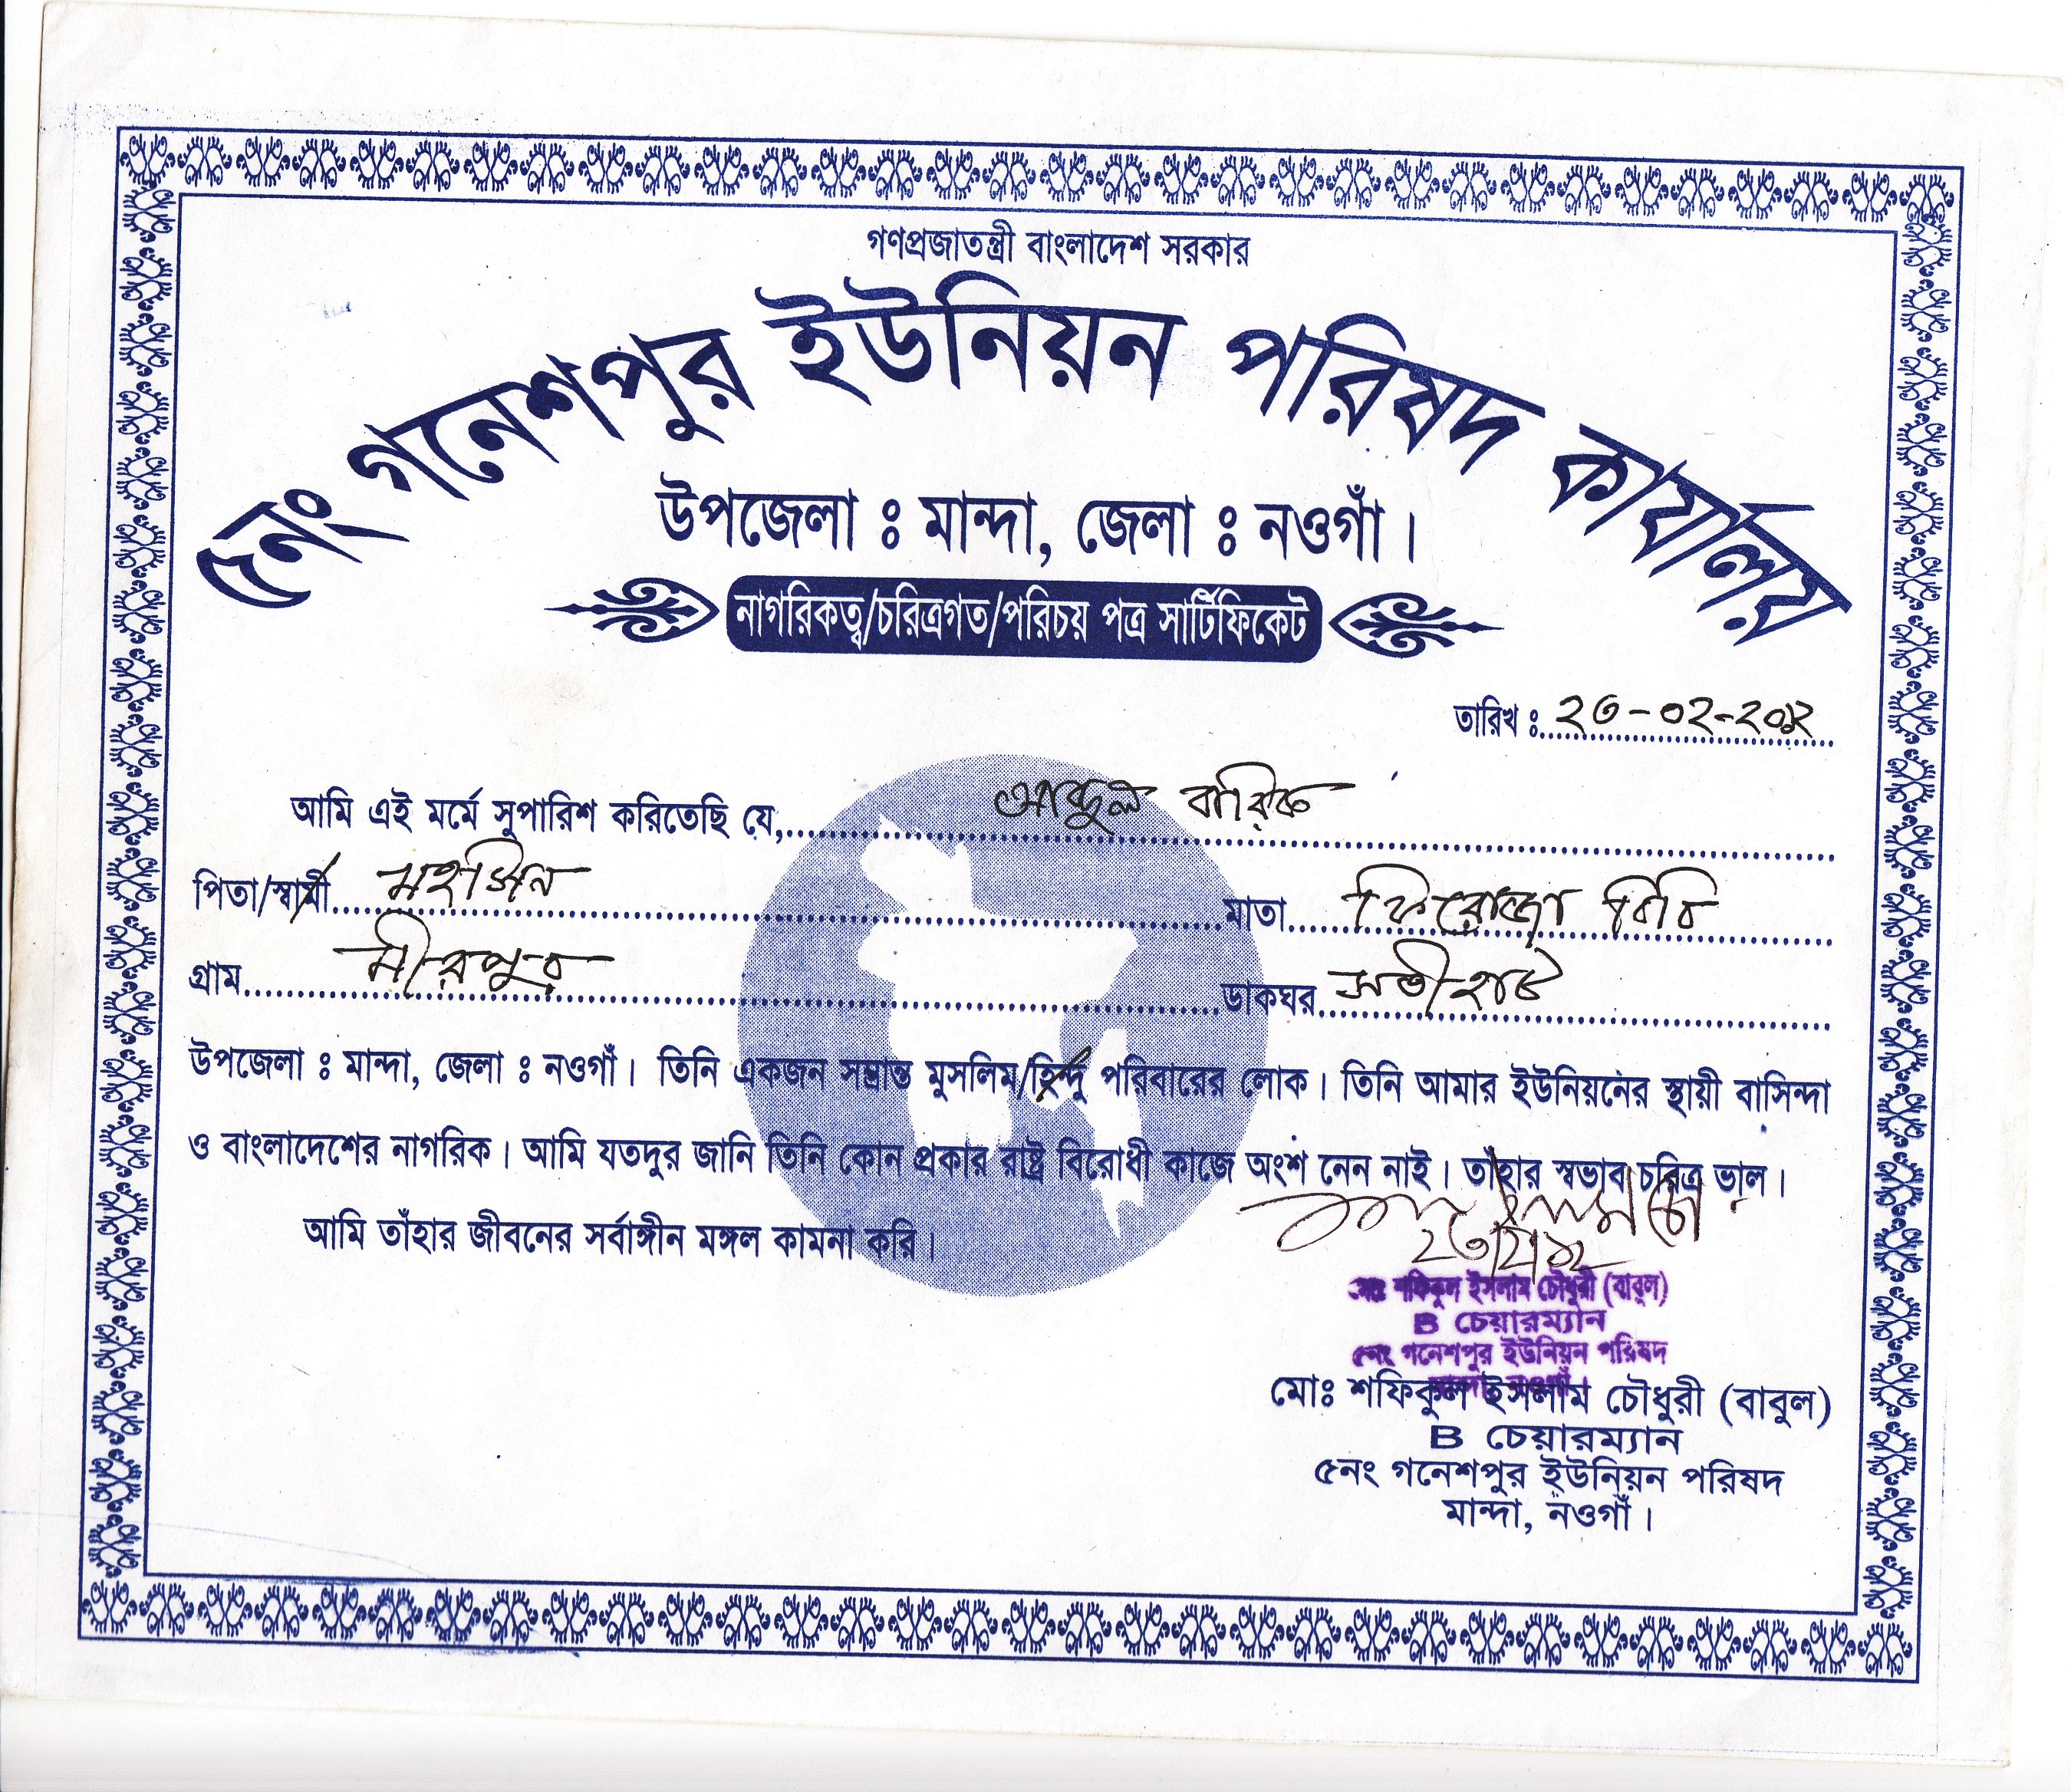 গণপ্রজাতন্ত্রী বাংলাদেশ সরকার
৫নং গনেশপুর ইউনিয়ন পরিষদ কার্যালয়
উপজেলা ঃ মান্দা, জেলা ঃ নওগাঁ।
নাগরিকত্ব/চরিত্রগত/পরিচয় পত্র সার্টিফিকেট
তারিখ ঃ ২৩-০২-২০১২
আমি এই মর্মে সুপারিশ করিতেছি যে, আব্দুল বারিক
পিতা/স্বামী মহসিন মাতা ফিরোজা বিবি
গ্রাম মীরপুর ডাকঘর সতীহাট
উপজেলা ঃ মান্দা, জেলা ঃ নওগাঁ। তিনি একজন সম্ভ্রান্ত মুসলিম/হিন্দু পরিবারের লোক। তিনি আমার ইউনিয়নের স্থায়ী বাসিন্দা
ও বাংলাদেশের নাগরিক। আমি যতদুর জানি তিনি কোন প্রকার রাষ্ট্র বিরোধী কাজে অংশ নেন নাই। তাঁহার স্বভাব চরিত্র ভাল।
আমি তাঁহার জীবনের সর্বাঙ্গীন মঙ্গল কামনা করি।
মোঃ শফিকুল ইসলাম চৌধুরী (বাবুল)
B চেয়ারম্যান
৫নং গনেশপুর ইউনিয়ন পরিষদ
মোঃ শফিকুল ইসলাম চৌধুরী (বাবুল)
B চেয়ারম্যান
৫নং গনেশপুর ইউনিয়ন পরিষদ
মান্দা, নওগাঁ।